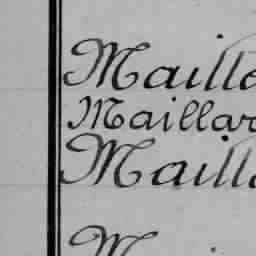 Maille
Maillar
Mailla